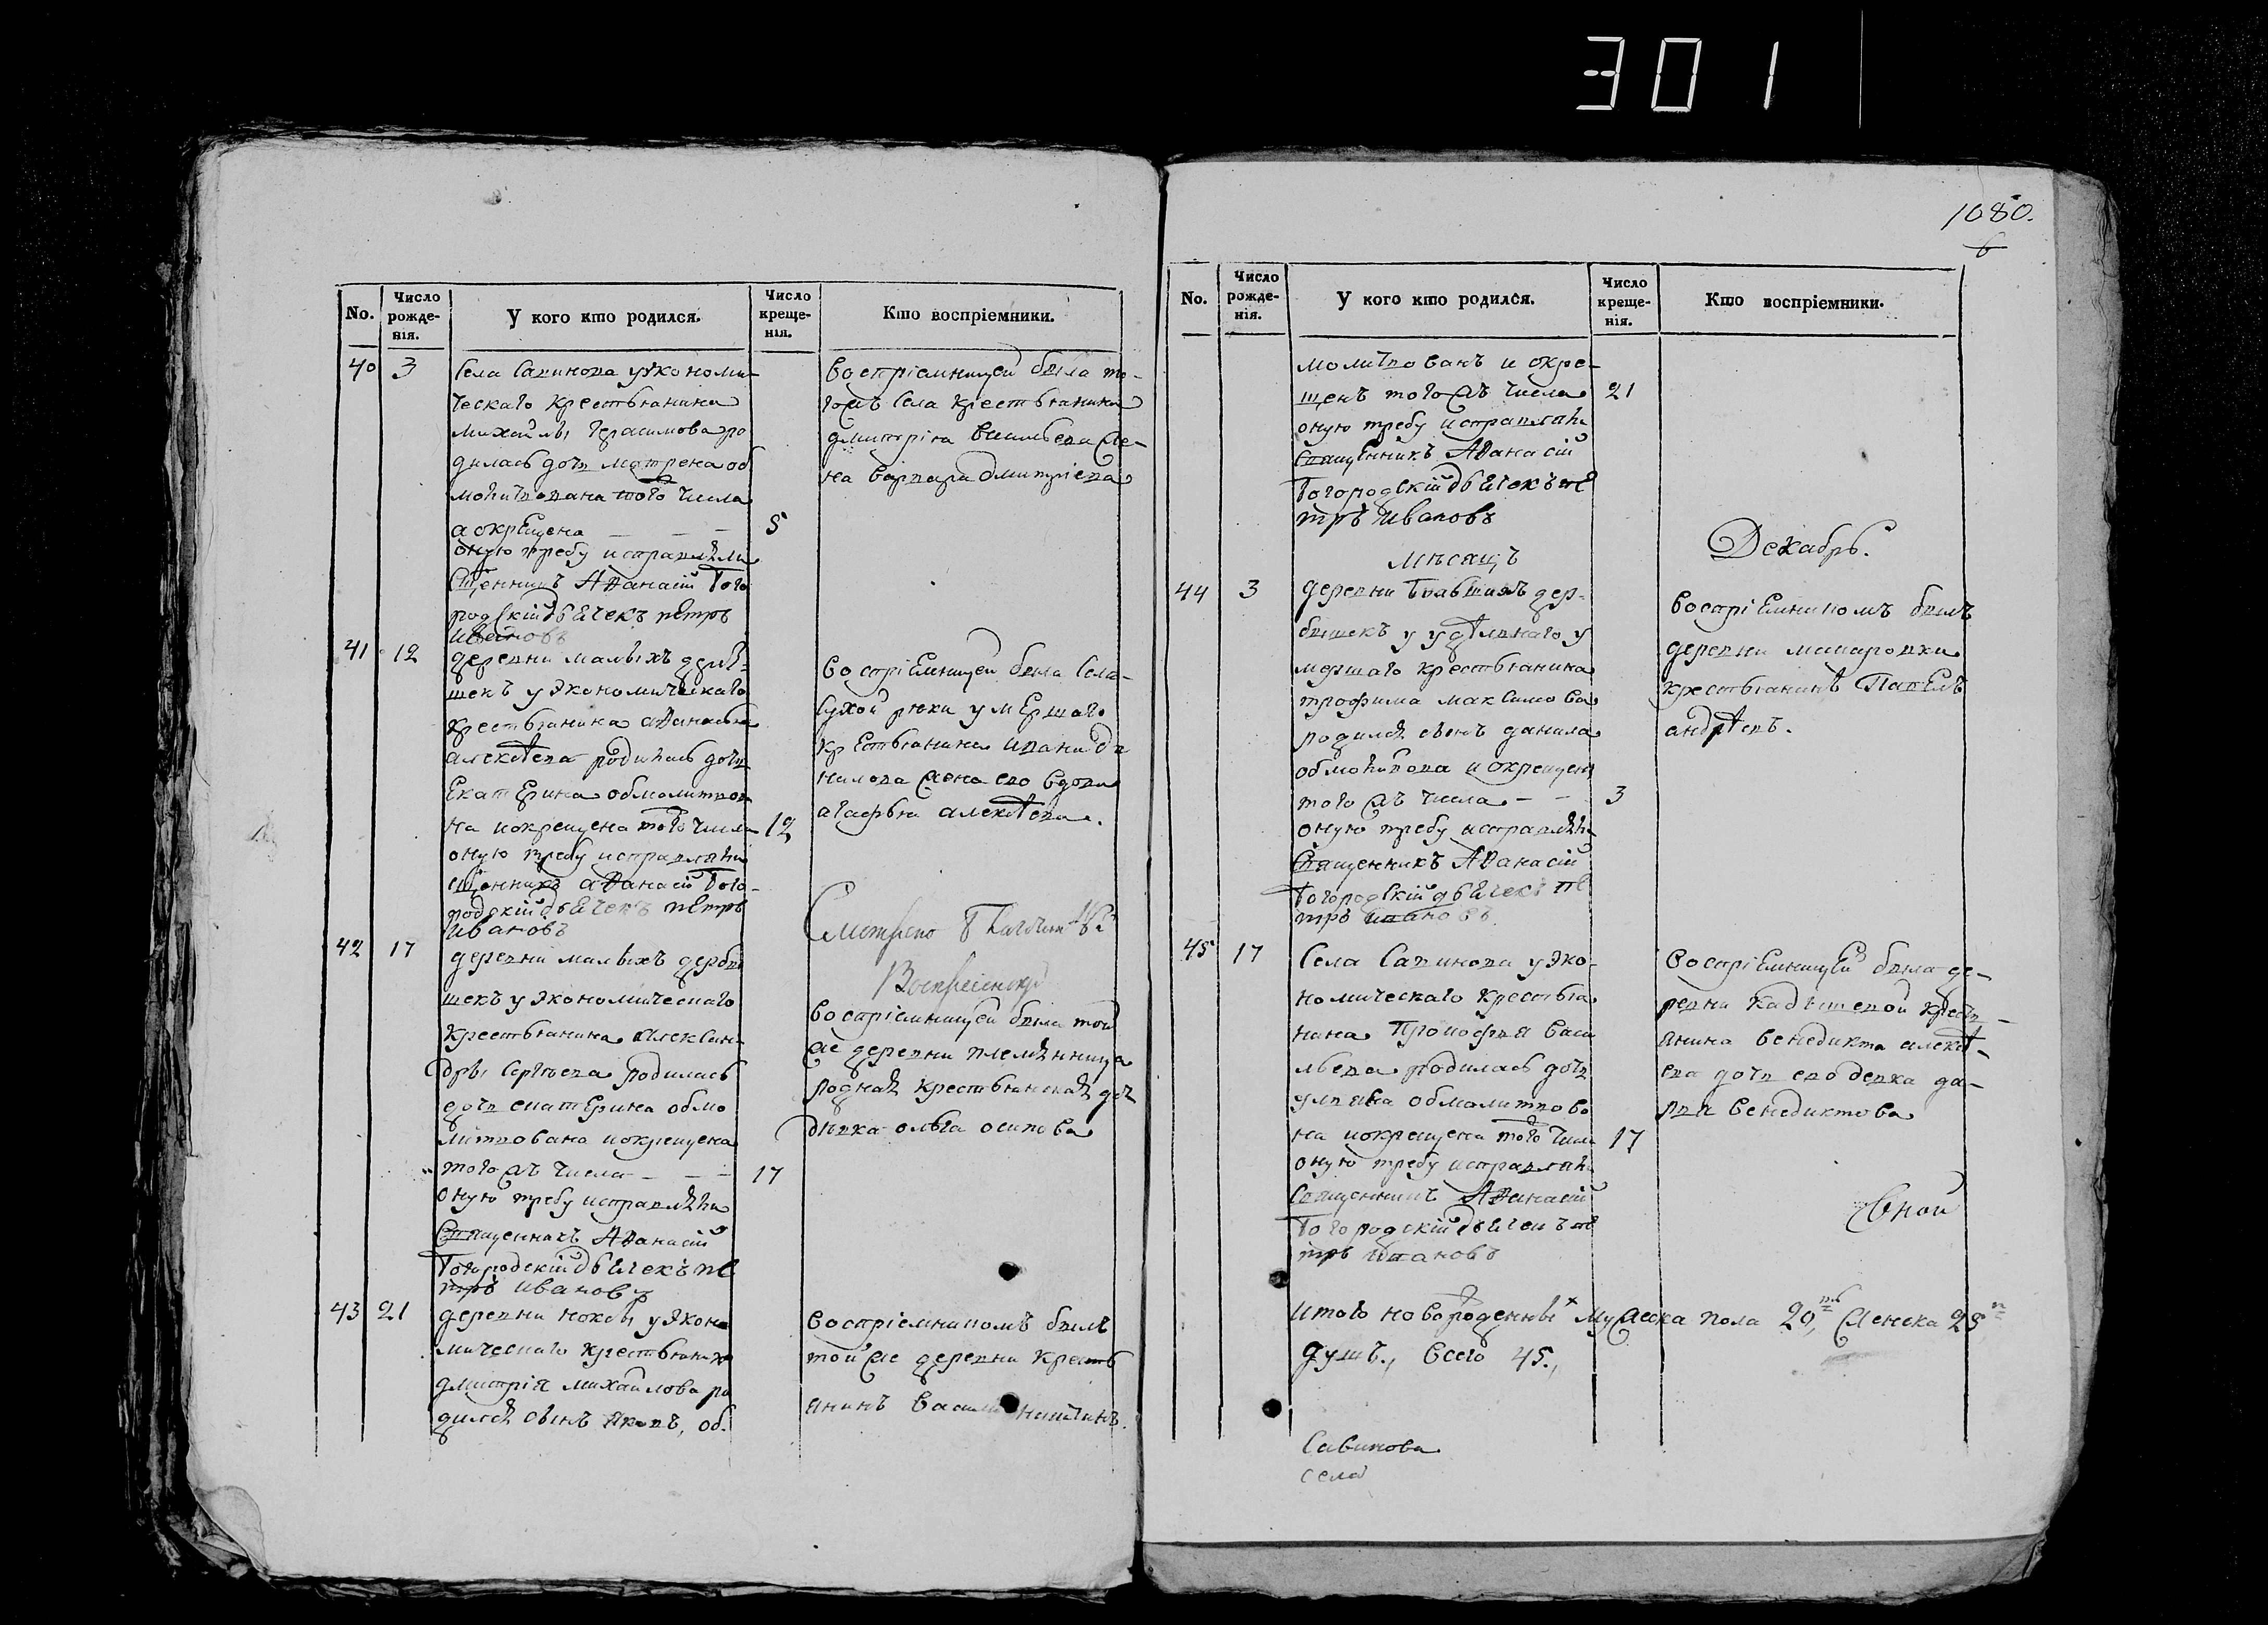 301
1080.
No.
Число рожде-нія.
У кого кто родился.
Число креще-нія.
Кто воспріемники.
40 3
Села Савинова у Экономи-
ческаго крестьянина
михайлы Герасимова ро
дилась дочь матрена об
молитвована того числа
а окрещена — — 5
оную требу исправляли
Сщенникъ Афанасій Бого
родскій дьячекъ петръ
Ивановъ
воспріемницей была то-
гожъ Села крестьянина
дмитрія васильева же-
на варвара дмитріева
41 12
деревни малыхъ дербы-
шекъ у Экономическаго
крестьянина афанасья
алексѣева родилась дочь
Екатерина обмолитвова
на и окрещена того числа 12
оную требу исправляли
сщенникъ афанасій Бого-
родскій дьячекъ петръ
Ивановъ
воспріемницей была Села
Сухой рѣки умершаго
крестьянина ивана да
нилова жена его вдова
агафья алексѣева.
Смотрено
Воскресенскій
42 17
деревни малыхъ дербы
шекъ у Экономическаго
крестьянина алексан-
дры Сергѣева родилась
дочь екатерина обмо
литвована и окрещена
того жъ числа — — — 17
оную требу исправляли
Священникъ Афанасій
Богородскій дьячекъ пе
тръ Ивановъ
воспріемницей была той
же деревни племянница
родная крестьянская дочь
дѣвка ольга осипова
43 21
деревни ноксы у Эконо
мическаго крестьянина
дмитрія михайлова ро
дился сынъ яковъ, об.
воспріемникомъ былъ
той же деревни кресть
янинъ василій никитинъ.
No.
Число рожде-нія.
У кого кто родился.
Число креще-нія.
Кто воспріемники.
молитвованъ и окре-
щенъ того жъ числа 21
оную требу исправляли
Священникъ Афанасій
Богородскій дьячекъ пе
тръ Ивановъ
мѣсяцъ Декабрь.
44 3
деревни Большихъ дер-
бышекъ у удѣльнаго у
мершаго крестьянина
трофима максимова
родился сынъ данила
обмолитвова и окрещенъ
того жъ числа — — 3
оную требу исправляли
Священникъ Афанасій
Богородскій дьячекъ пе
тръ Ивановъ
воспріемникомъ былъ
деревни макаровки
крестьянинъ Павелъ
андрѣевъ.
45 17
Села Савинова у эко-
номическаго крестья
нина Прокофья васи
льева родилась дочь
ульяна обмолитвова
на и окрещена того числа 17
оную требу исправляли
Священникъ Афанасій
Богородскій дьячекъ пе
тръ Ивановъ
воспріемницей была де-
ревни кадышевой кресть-
янина венедикта алексѣ-
ева дочь его девка да-
рья венедиктова
Итого новорожденны х мужеска пола 20, женска 25
душъ., всего 45.,
Савинова
села